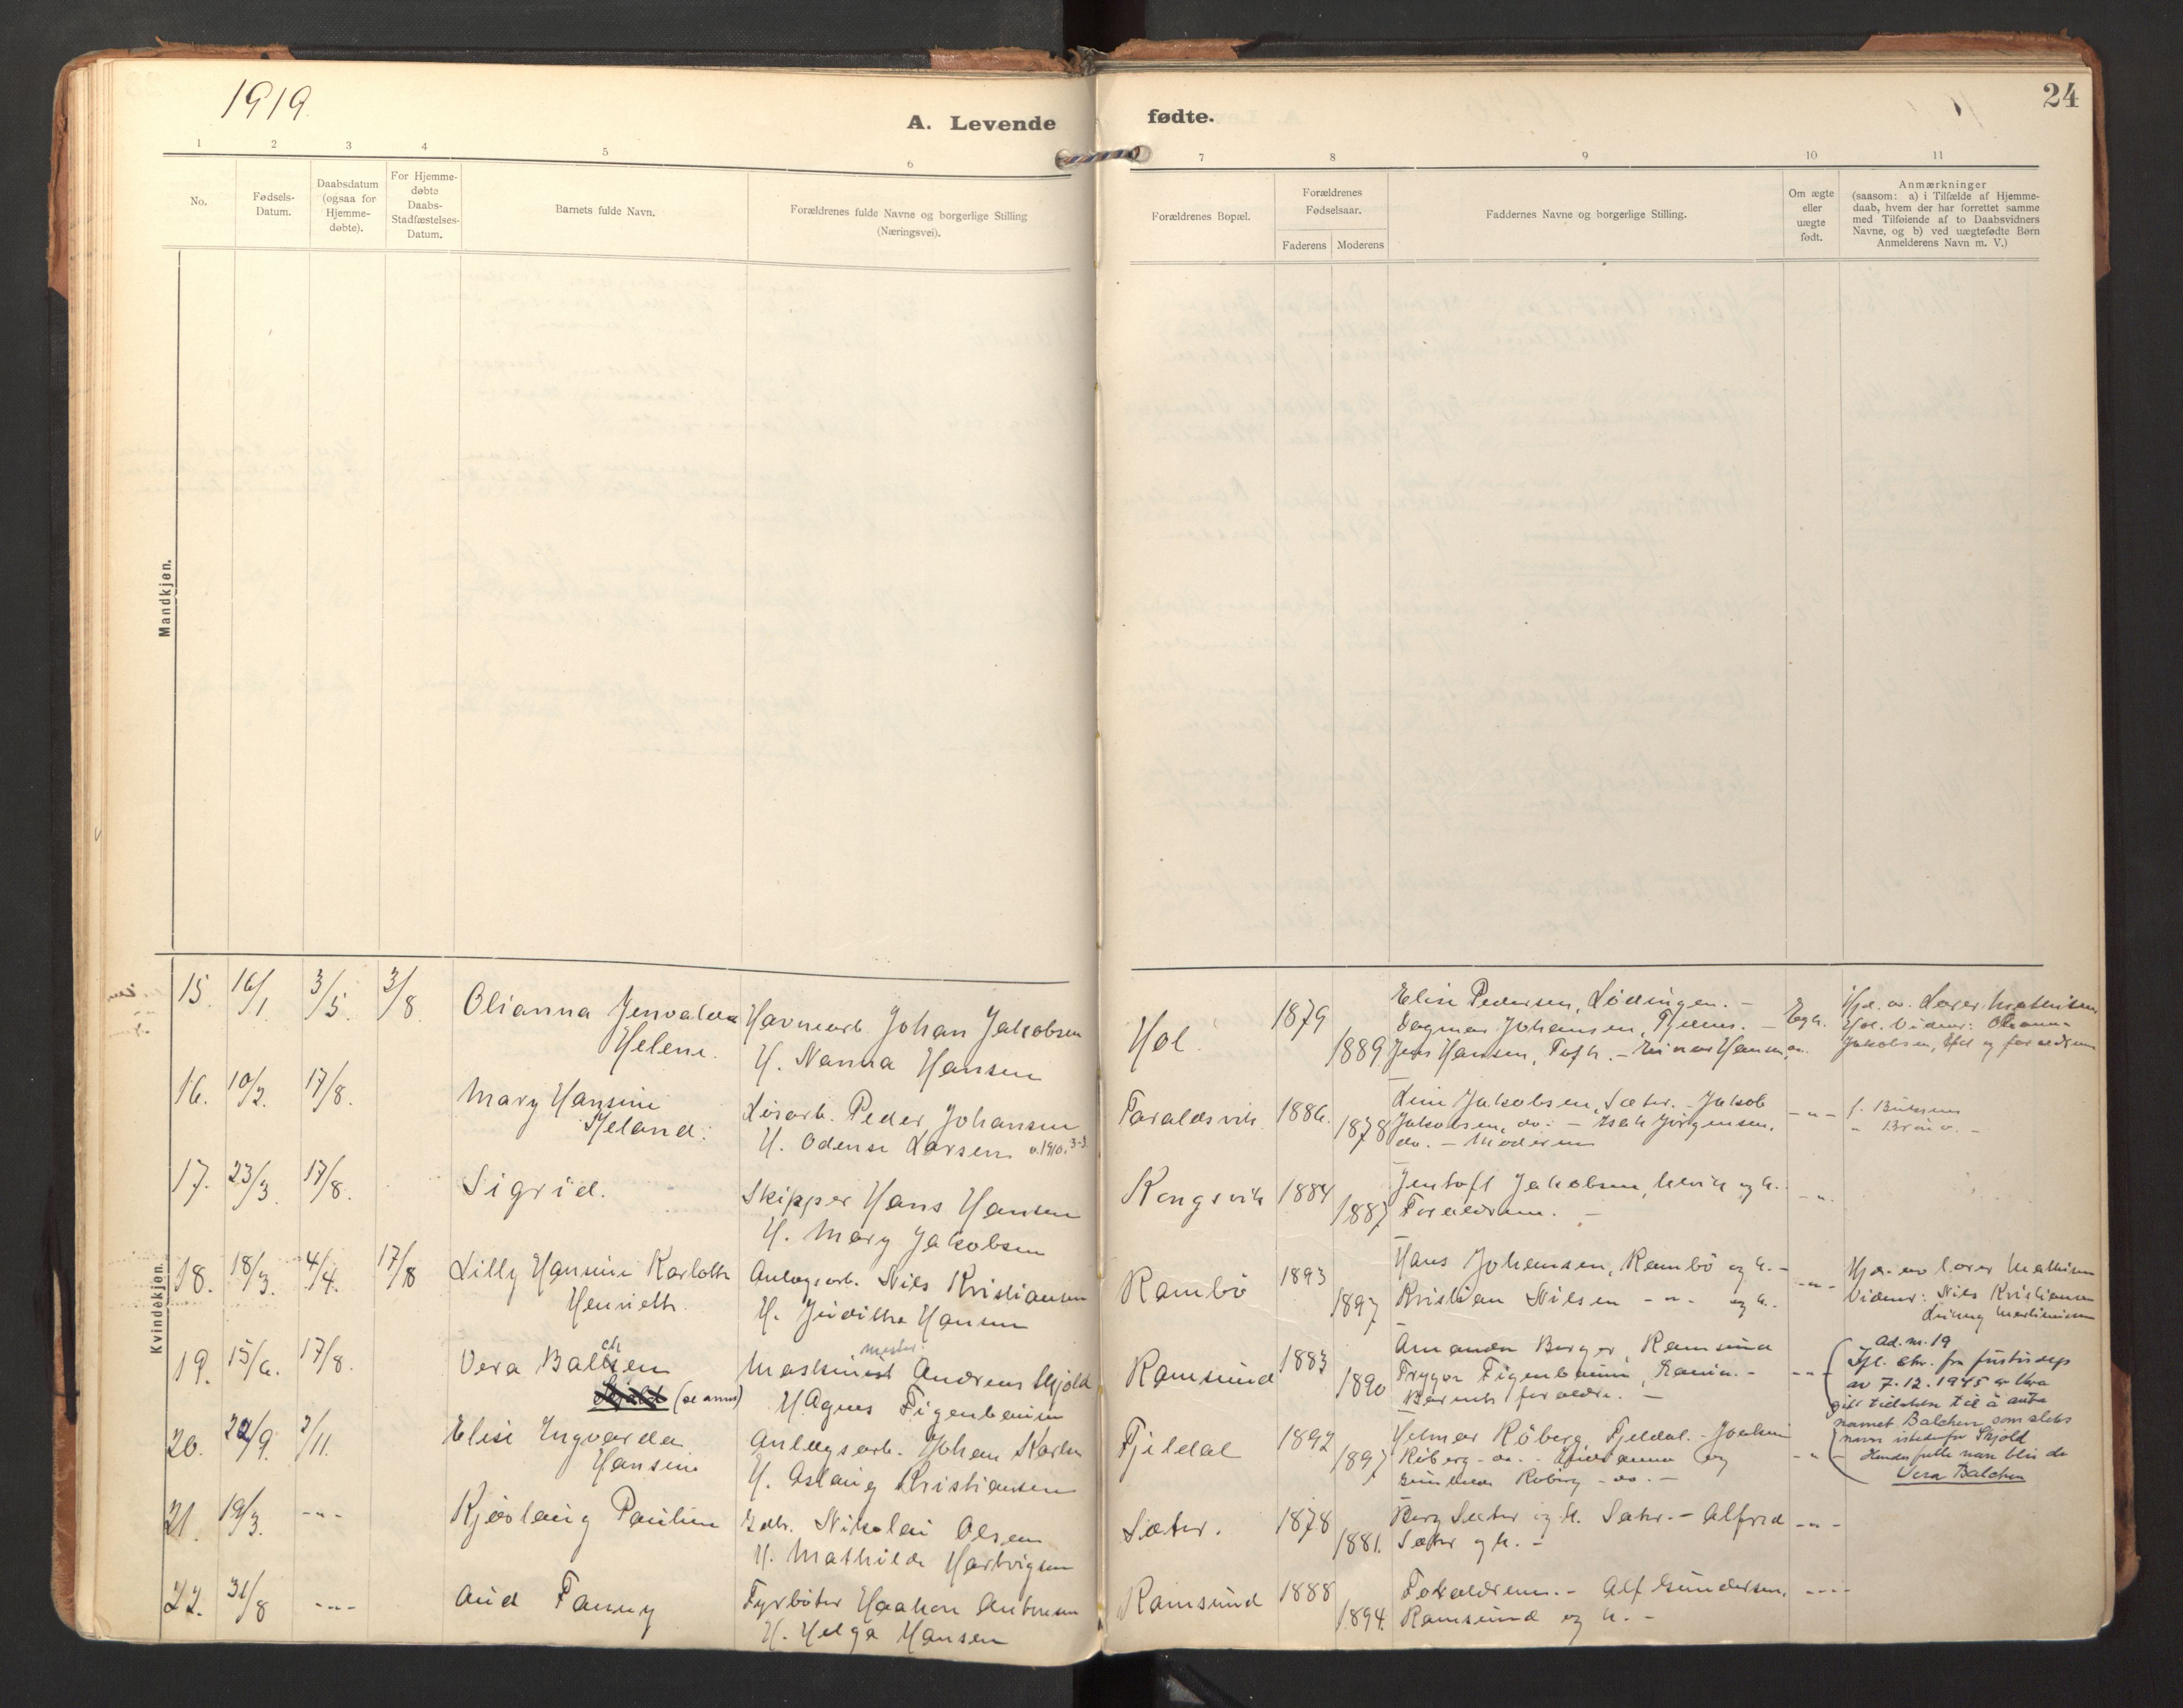 1919
A. Levende
fødte.
24
1
2
3
4
5
6
7
8
9
10
11
No.
Fødsels-
Datum.
Daabsdatum
(ogsaa for
Hjemme-
døbte).
For Hjemme-
døbte
Daabs-
Stadfæstelses-
Datum.
Barnets fulde Navn.
Forældrenes fulde Navne og borgerlige Stilling
(Næringsvei).
Forældrenes Bopæl.
Forældrenes
Fødselsaar.
Faderens
Moderens
Faddernes Navne og borgerlige Stilling.
Om ægte
eller
uægte
født.
Anmærkninger
(saasom: a) i Tilfælde af Hjemme-
daab, hvem der har forrettet samme
med Tilføiende af to Daabsvidners
Navne, og b) ved uægtefødte Børn
Anmelderens Navn m. V.)
Mandkjøn.
Kvindekjøn.
15. 16/1. 3/5. 3/8.
Olianna
Helene.
Havnearb. Johan Jakobsen
H. Nanna Hansen
Hol.
1879
1889.
Elise Pedersen, Lödingen. -
Dagmar Johansen, - Egt.
Jens Hansen, Toft. - Einar Hansen, do.
Hjd. av Lærer Mathisen
Hol. Vidner:
Jakobsen, Hol og forældrene
16. 10/2. 17/8.
Mary Hansine
Jeland.
Lösarb. Peder Johansen
H. Odense Larsen v. 1910. 3-3.
Taraldsvik.
1886.
1878
Line Jakobsen, Sæter. - Jakob
Jakobsen, do. - Isak Jörgensen,
do. - Moderen
- " -
17. 23/3. 17/8.
Sigrid.
Skipper Hans Hansen
H. Mary Jakobsen
Kongsvik
1884
1887
Jentoft Jakobsen, og h.
Forældrene. -
- " -
18. 18/3. 4/4. 17/8
Lilly Hansine Karloth
Henrieth.
Anlægsarb. Nils Kristiansen
H. Judithe Hansen
Rambö
1893
1897
Hans Johansen, Rambö og h. -
Kristian Nilsen - " - og h.
- " -
Hjd. av lærer Mathisen
Vidner: Nils Kristiansen
19. 15/6. 17/8.
Vera Balchen
Skjold (se anm)
mester
Maskinist Andreas Skjold
H. Agnes Figenbaum
Ramsund
1883
1890
Amanda Berger, Ramsund
Trygve Figenbaum, -
Barnets forældre. -
- " -
Ad. nr. 19
Ifl. skr. fra justisdep
av 7.12.1945 er Vera
gitt tillatelse til å anta
navnet Balchen som slekts
navn istedenfor Skjold
Hendes fulle navn blir da
Vera Balchen
20. 22/9. 2/11.
Elise Ingvarda
Hansine
Anlægsarb. Johan Karlsen
H. Aslaug Kristiansen
Fjeldal
1892
1897
Helmer Röberg, Fjeldal. - Joakim
Röberg - do. - og
Röberg - do. -
- " -
21. 19/3. - " -
Kjøslaug Pauline
Gdbr. Nikolai Olsen
H. Mathilde Hartvigsen
Sæter.
1878
1881.
Berg Sæter og h. Sæter. - Alfred
Sæter og h. -
- " -
22. 31/8 - " -
Aud Fanny
Fyrböter Haakon Antonsen
H. Helga Hansen
Ramsund
1888
1894.
Forældrene. - Alf Gundersen,
Ramsund og h. -
- " -